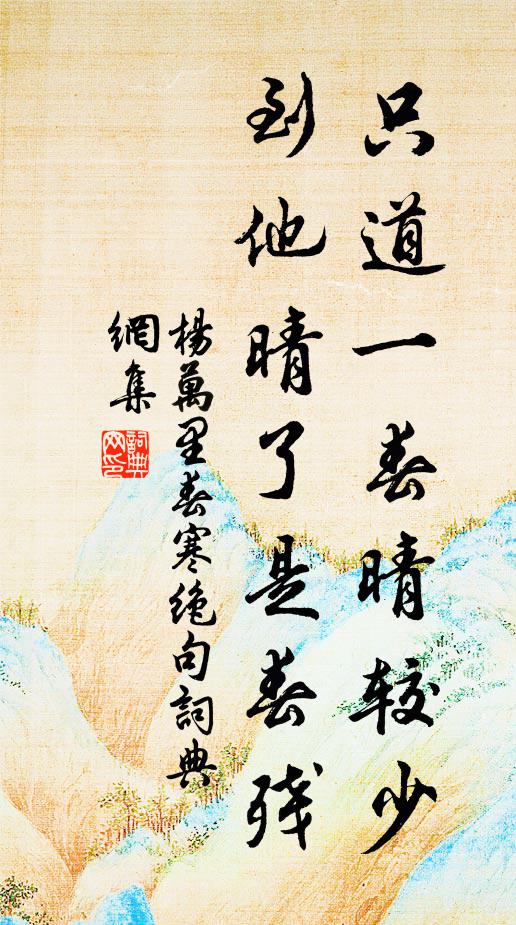 只道一春晴较少
到他晴了是春残
楊萬里春寒绝句詞典
網集
詞典
网印